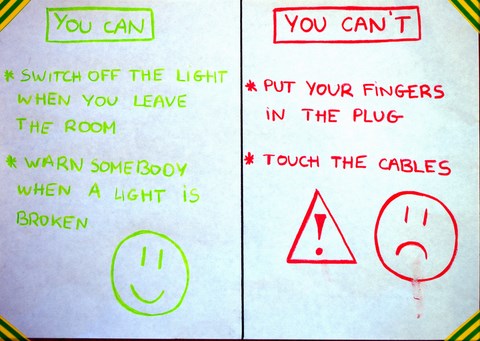 YOU CAN
* SWITCH OFF THE LIGHT
WHEN YOU LEAVE
THE ROOM
* WARN SOMEBODY
WHEN A LIGHT iS
BROKEN
YOU CAN'T
* PUT YOUR FiNGERS
iN THE PLUG
* TOUCH THE CABLES
!